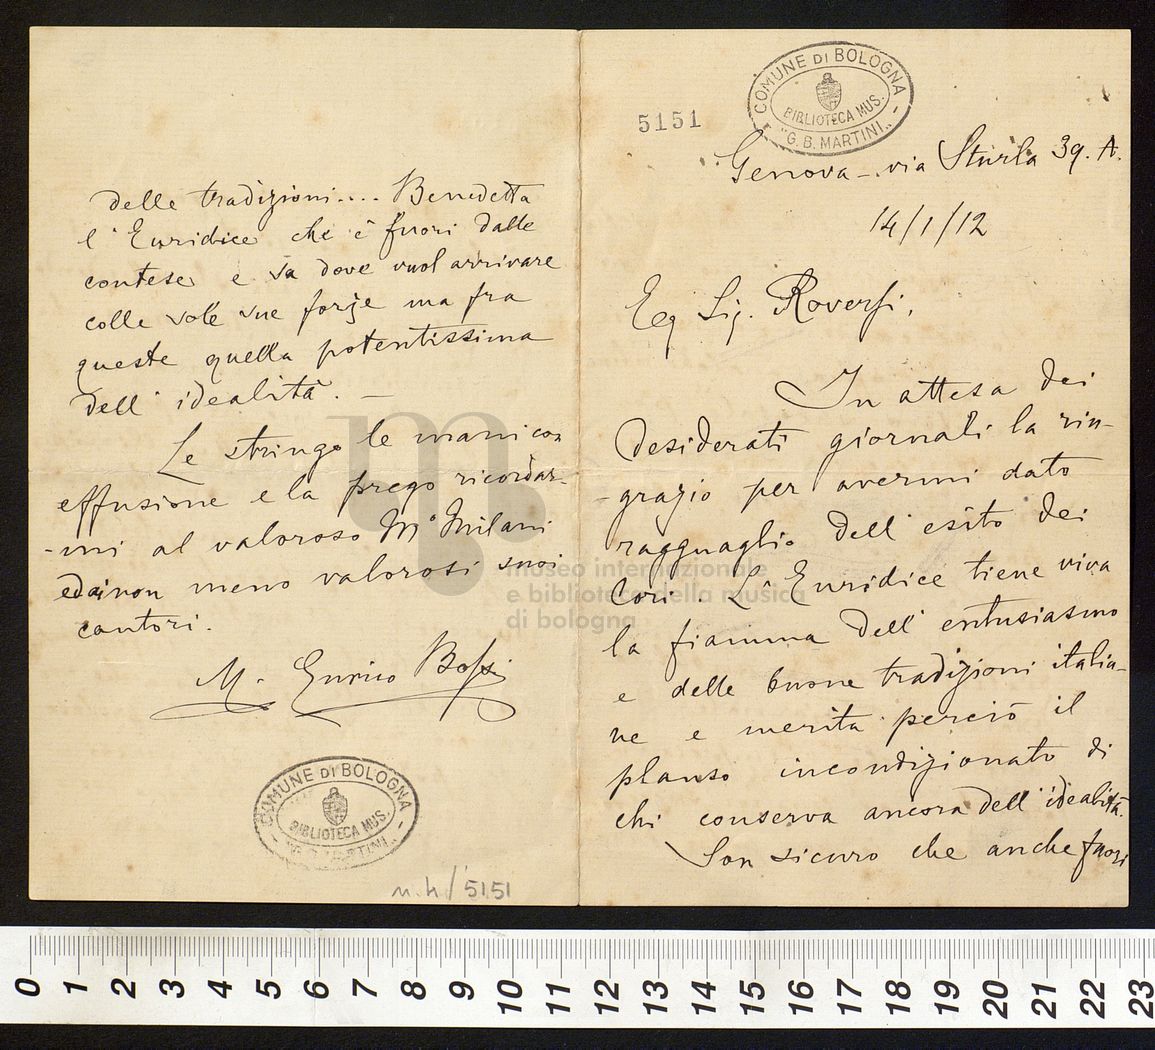 5151
COMUNE DI BOLOGNA
BIBLIOTECA MUS.
"G. B. MARTINI"
Genova - via Sturla 39. A.
14/1/12
Eg Sig. Roversi,
In attesa dei
desiderati giornali la rin-
-grazio per avermi dato
ragguaglio dell'esito dei
Cori. L'Euridice tiene viva
la fiamma dell'entusiasmo
e delle buone tradizioni italia-
ne e merita perciò il
plauso incondizionato di
chi conserva ancora dell'idealità.
Son sicuro che anche fuori
delle tradizioni.... Benedetta
l'Euridice che è fuori dalle
contese e va dove vuol arrivare
colle sole sue forze ma fra
queste quella potentissima
dell'idealità. —
Le stringo le mani con
effusione e la prego ricordar-
-mi al valoroso Mº Milani
ed ai non meno valorosi suoi
cantori.
M. Enrico Bossi
COMUNE DI BOLOGNA
BIBLIOTECA MUS.
"G. B. MARTINI"
5151
museo internazionale
e biblioteca della musica
di bologna
0 1 2 3 4 5 6 7 8 9 10 11 12 13 14 15 16 17 18 19 20 21 22 23